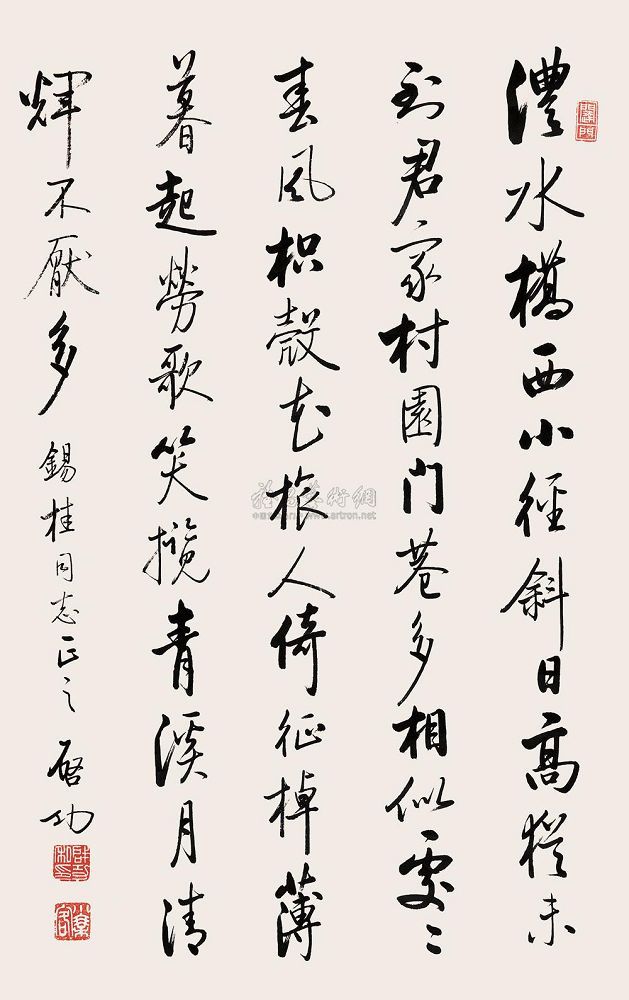 澧水橋西小徑斜日高猶未
到君家村園門巷多相似處〻
春風枳殼花旅人倚征棹薄
暮起勞歌笑攬青溪月清
輝不厭多 錫桂同志正之 启功
www.artron.net